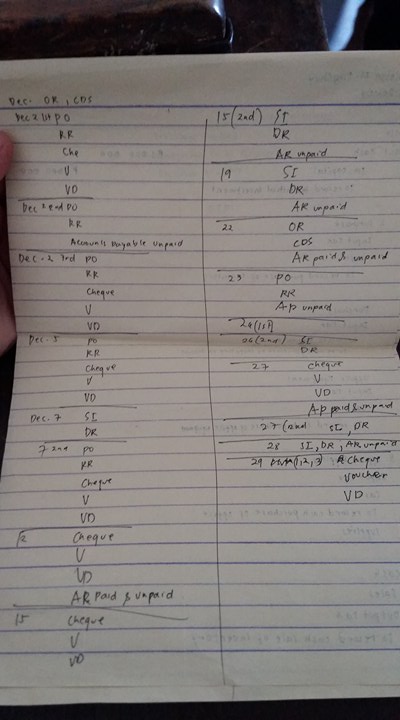 Dec. OR, CDS
Dec 2 1st PO
RR
Che
V
VD
Dec 2 2nd PO
RR
Accounts Payable unpaid
Dec-2 3rd PO
RR
Cheque
V
VD
Dec. 5 PO
RR
Cheque
V
VD
Dec. 7 SI
DR
7 2nd PO
RR
Cheque
V
VD
12 Cheque
V
VD
AR Paid & unpaid
15 Cheque
V
VD
15 (2nd) SI
DR
AR unpaid
19 SI
DR
AR unpaid
22 OR
CDS
AR paid & unpaid
23 PO
RR
AP unpaid
26 (1st)
26 (2nd) SI
DR
27 Cheque
V
VD
AP paid & unpaid
27 (2nd SI, DR
28 SI, DR, AR unpaid
29 (1,2,3) Cheque
Voucher
VD